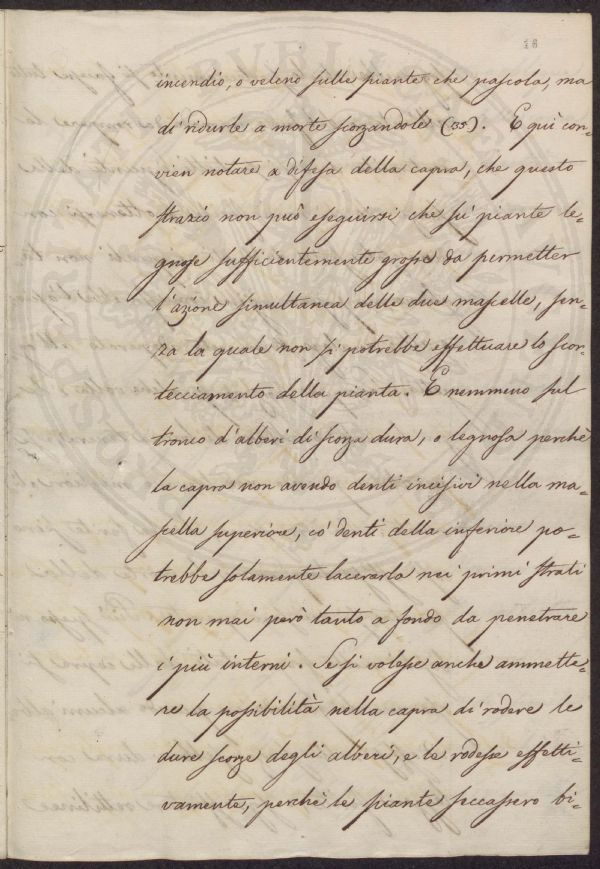 18
incendio, o veleno sulle piante che pascola, ma
di ridurle a morte scorzandole (35). E quì con-
vien notare a difesa della capra, che questo
strazio non può eseguirsi che sù piante le-
gnose sufficientemente grosse da permetter
l'azione simultanea delle due mascelle, sen-
za la quale non si potrebbe effettuare lo scor-
tecciamento della pianta. E nemmeno sul
tronco d'alberi di scorza dura, o legnosa perchè
la capra non avendo denti incisivi nella ma-
scella superiore, co' denti della inferiore po-
trebbe solamente lacerarla nei primi strati
non mai però tanto a fondo da penetrare
i più interni. Se si volesse anche ammette-
re la possibilità nella capra di rodere le
dure scorze degli alberi, e le rodesse effetti-
vamente, perchè le piante seccassero bi-